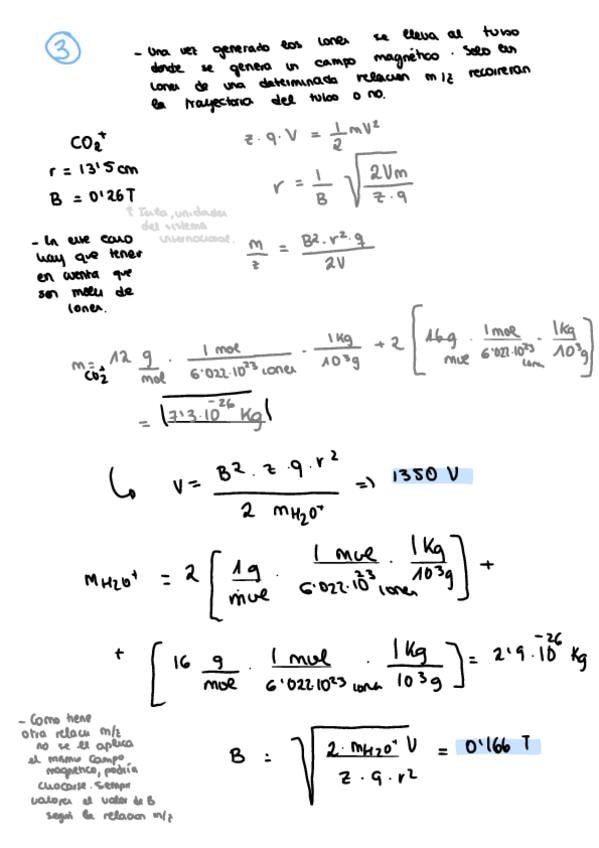 3
- Una vez generado los iones se lleva al tubo
donde se genera un campo magnético. Solo los
iones de una determinada relación m/z recorreran
la trayectoria del tubo o no.
CO₂⁺
r = 13'5 cm
B = 0'26 T
z · q · V = 1/2 mv²
r = 1/B √(2Vm / z · q)
↑ Tesla, unidades
del sistema
internacional.
m/z = B² · r² · q / 2V
- En este caso
hay que tener
en cuenta que
son moles de
iones.
m CO₂⁺ = 12 g/mol · 1 mol / 6'022·10²³ iones · 1 Kg / 10³ g + 2 [ 16 g / mol · 1 mol / 6'022·10²³ iones · 1 Kg / 10³ g ]
= 7'3·10⁻²⁶ Kg
↳ V = B² · z · q · r² / 2 m H₂O⁺ => 1350 V
m H₂O⁺ = 2 [ 1 g / mol · 1 mol / 6'022·10²³ iones · 1 Kg / 10³ g ] +
+ [ 16 g / mol · 1 mol / 6'022·10²³ iones · 1 Kg / 10³ g ] = 2'9·10⁻²⁶ Kg
- Como tiene
otra relacu m/z
no se le aplica
el mismo campo
magnetico, podría
chocarse. Sempre
valores el valor de B
segun la relacion m/z
B = √(2 · m H₂O⁺ V / z · q · r²) = 0'166 T